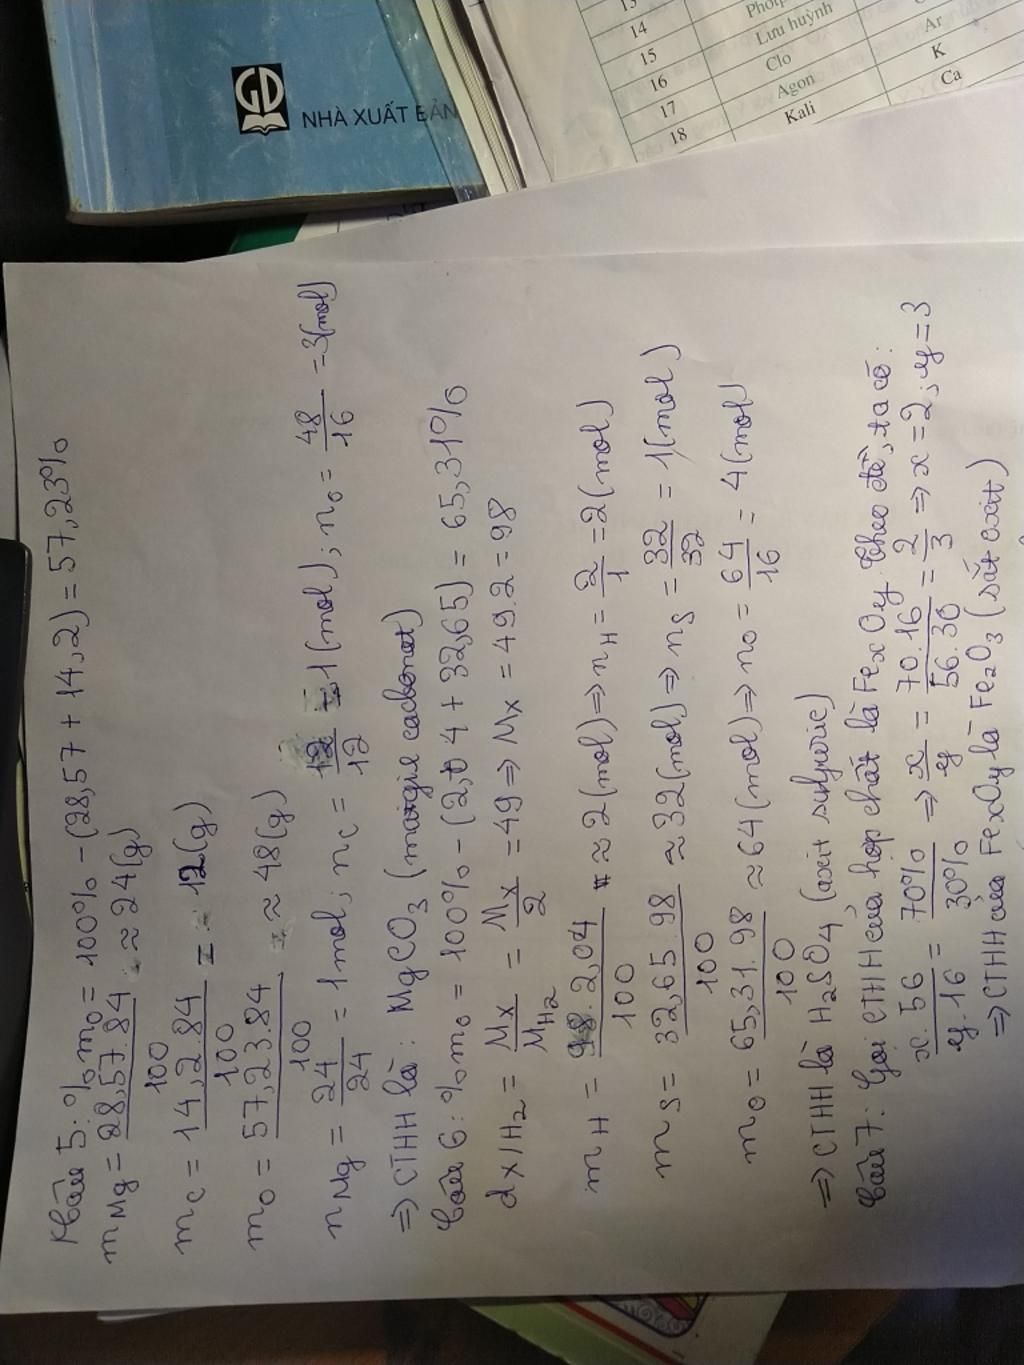 NHÀ XUẤT BẢN
14
15 Lưu huỳnh
16 Clo Ar
17 Agon K
18 Kali Ca
Câu 5: %mO = 100% - (28,57 + 14,2) = 57,23%
mMg = 28,57.84 / 100 ≈ 24(g)
mC = 14,2.84 / 100 = 12(g)
mO = 57,23.84 / 100 ≈ 48(g)
nMg = 24/24 = 1mol; nC = 12/12 = 1(mol); nO = 48/16 = 3(mol)
=> CTHH là: MgCO3 (magie cacbonat)
Câu 6: %mO = 100% - (2,04 + 32,65) = 65,31%
dX/H2 = MX/MH2 = MX/2 = 49 => MX = 49.2 = 98
mH = 98.2,04 / 100 ≈ 2(mol) => nH = 2/1 = 2(mol)
mS = 32,65.98 / 100 ≈ 32(mol) => nS = 32/32 = 1(mol)
mO = 65,31.98 / 100 ≈ 64(mol) => nO = 64/16 = 4(mol)
=> CTHH là H2SO4 (axit sulfuric)
Câu 7: Gọi CTHH của hợp chất là FexOy. Theo đề, ta có:
x.56 / y.16 = 70% / 30% => x/y = 70.16 / 56.30 = 2/3 => x = 2; y = 3
=> CTHH của FexOy là Fe2O3 (sắt oxit)